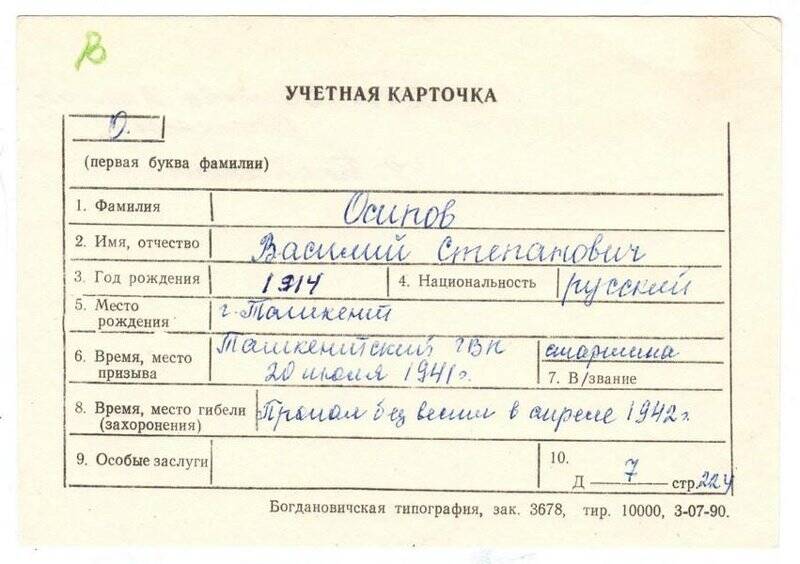 В
УЧЕТНАЯ КАРТОЧКА
О.
(первая буква фамилии)
1. Фамилия Осипов
2. Имя, отчество Василий Степанович
3. Год рождения 1914 4. Национальность русский
5. Место рождения г. Ташкент
6. Время, место призыва Ташкентский ГВК 20 июля 1941 г. старшина
7. В/звание
8. Время, место гибели (захоронения) Пропал без вести в апреле 1942 г.
9. Особые заслуги
10. Д 7 стр. 224
Богдановичская типография, зак. 3678, тир. 10000, 3-07-90.